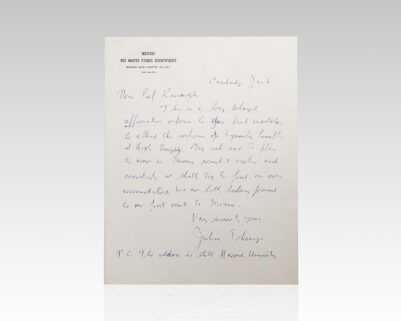 INSTITUT
DES HAUTES ÉTUDES SCIENTIFIQUES
Cambridge Jan 6
Dear Prof.
This is a long delayed
affirmative response to your kind invitation
to attend the conference of
at High Energy. My wife and I plan
to come to somewhat earlier and
accordingly we shall try to find our own
accomodations. We are both looking forward
to our first visit to
Very sincerely yours
P.S. The address is still Harvard University